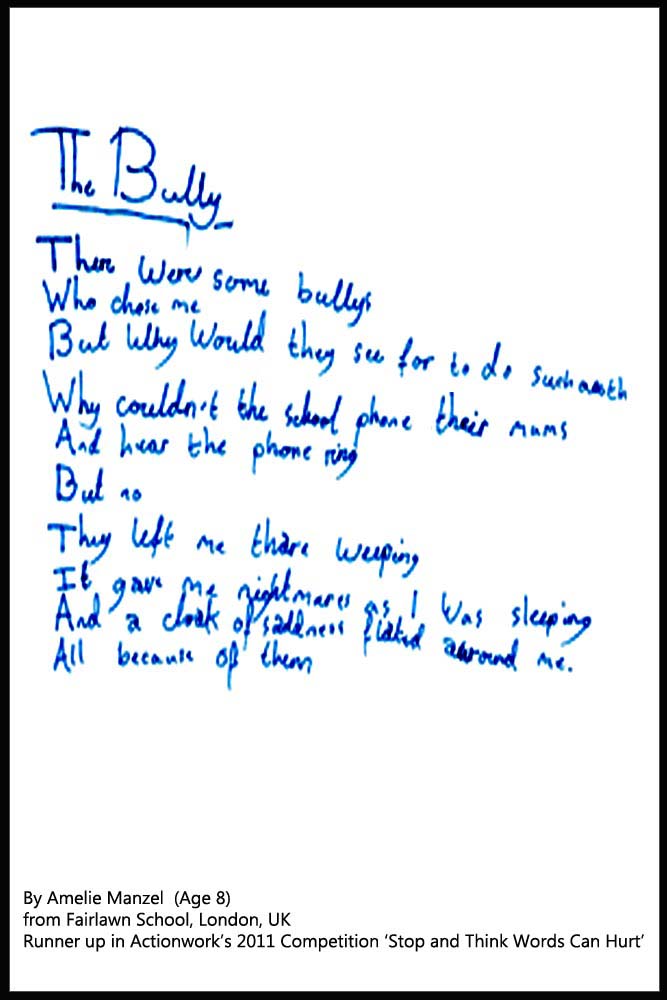 The Bully
There were some bullys
Who chose me
But Why Would they see for to do such
Why couldn't the school phone their mums
And hear the phone ring
But no
They left me thare weeping
It gave me nightmares as I was sleeping
And a cloak of saddness around me.
All because of them
By Amelie Manzel (Age 8)
from Fairlawn School, London, UK
Runner up in Actionwork's 2011 Competition 'Stop and Think Words Can Hurt'